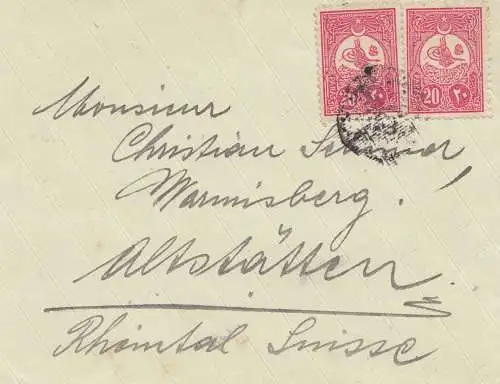 20 ٢٠
Monsieur
Christian
Warmisberg.
Altstätten.
Rheintal Suisse